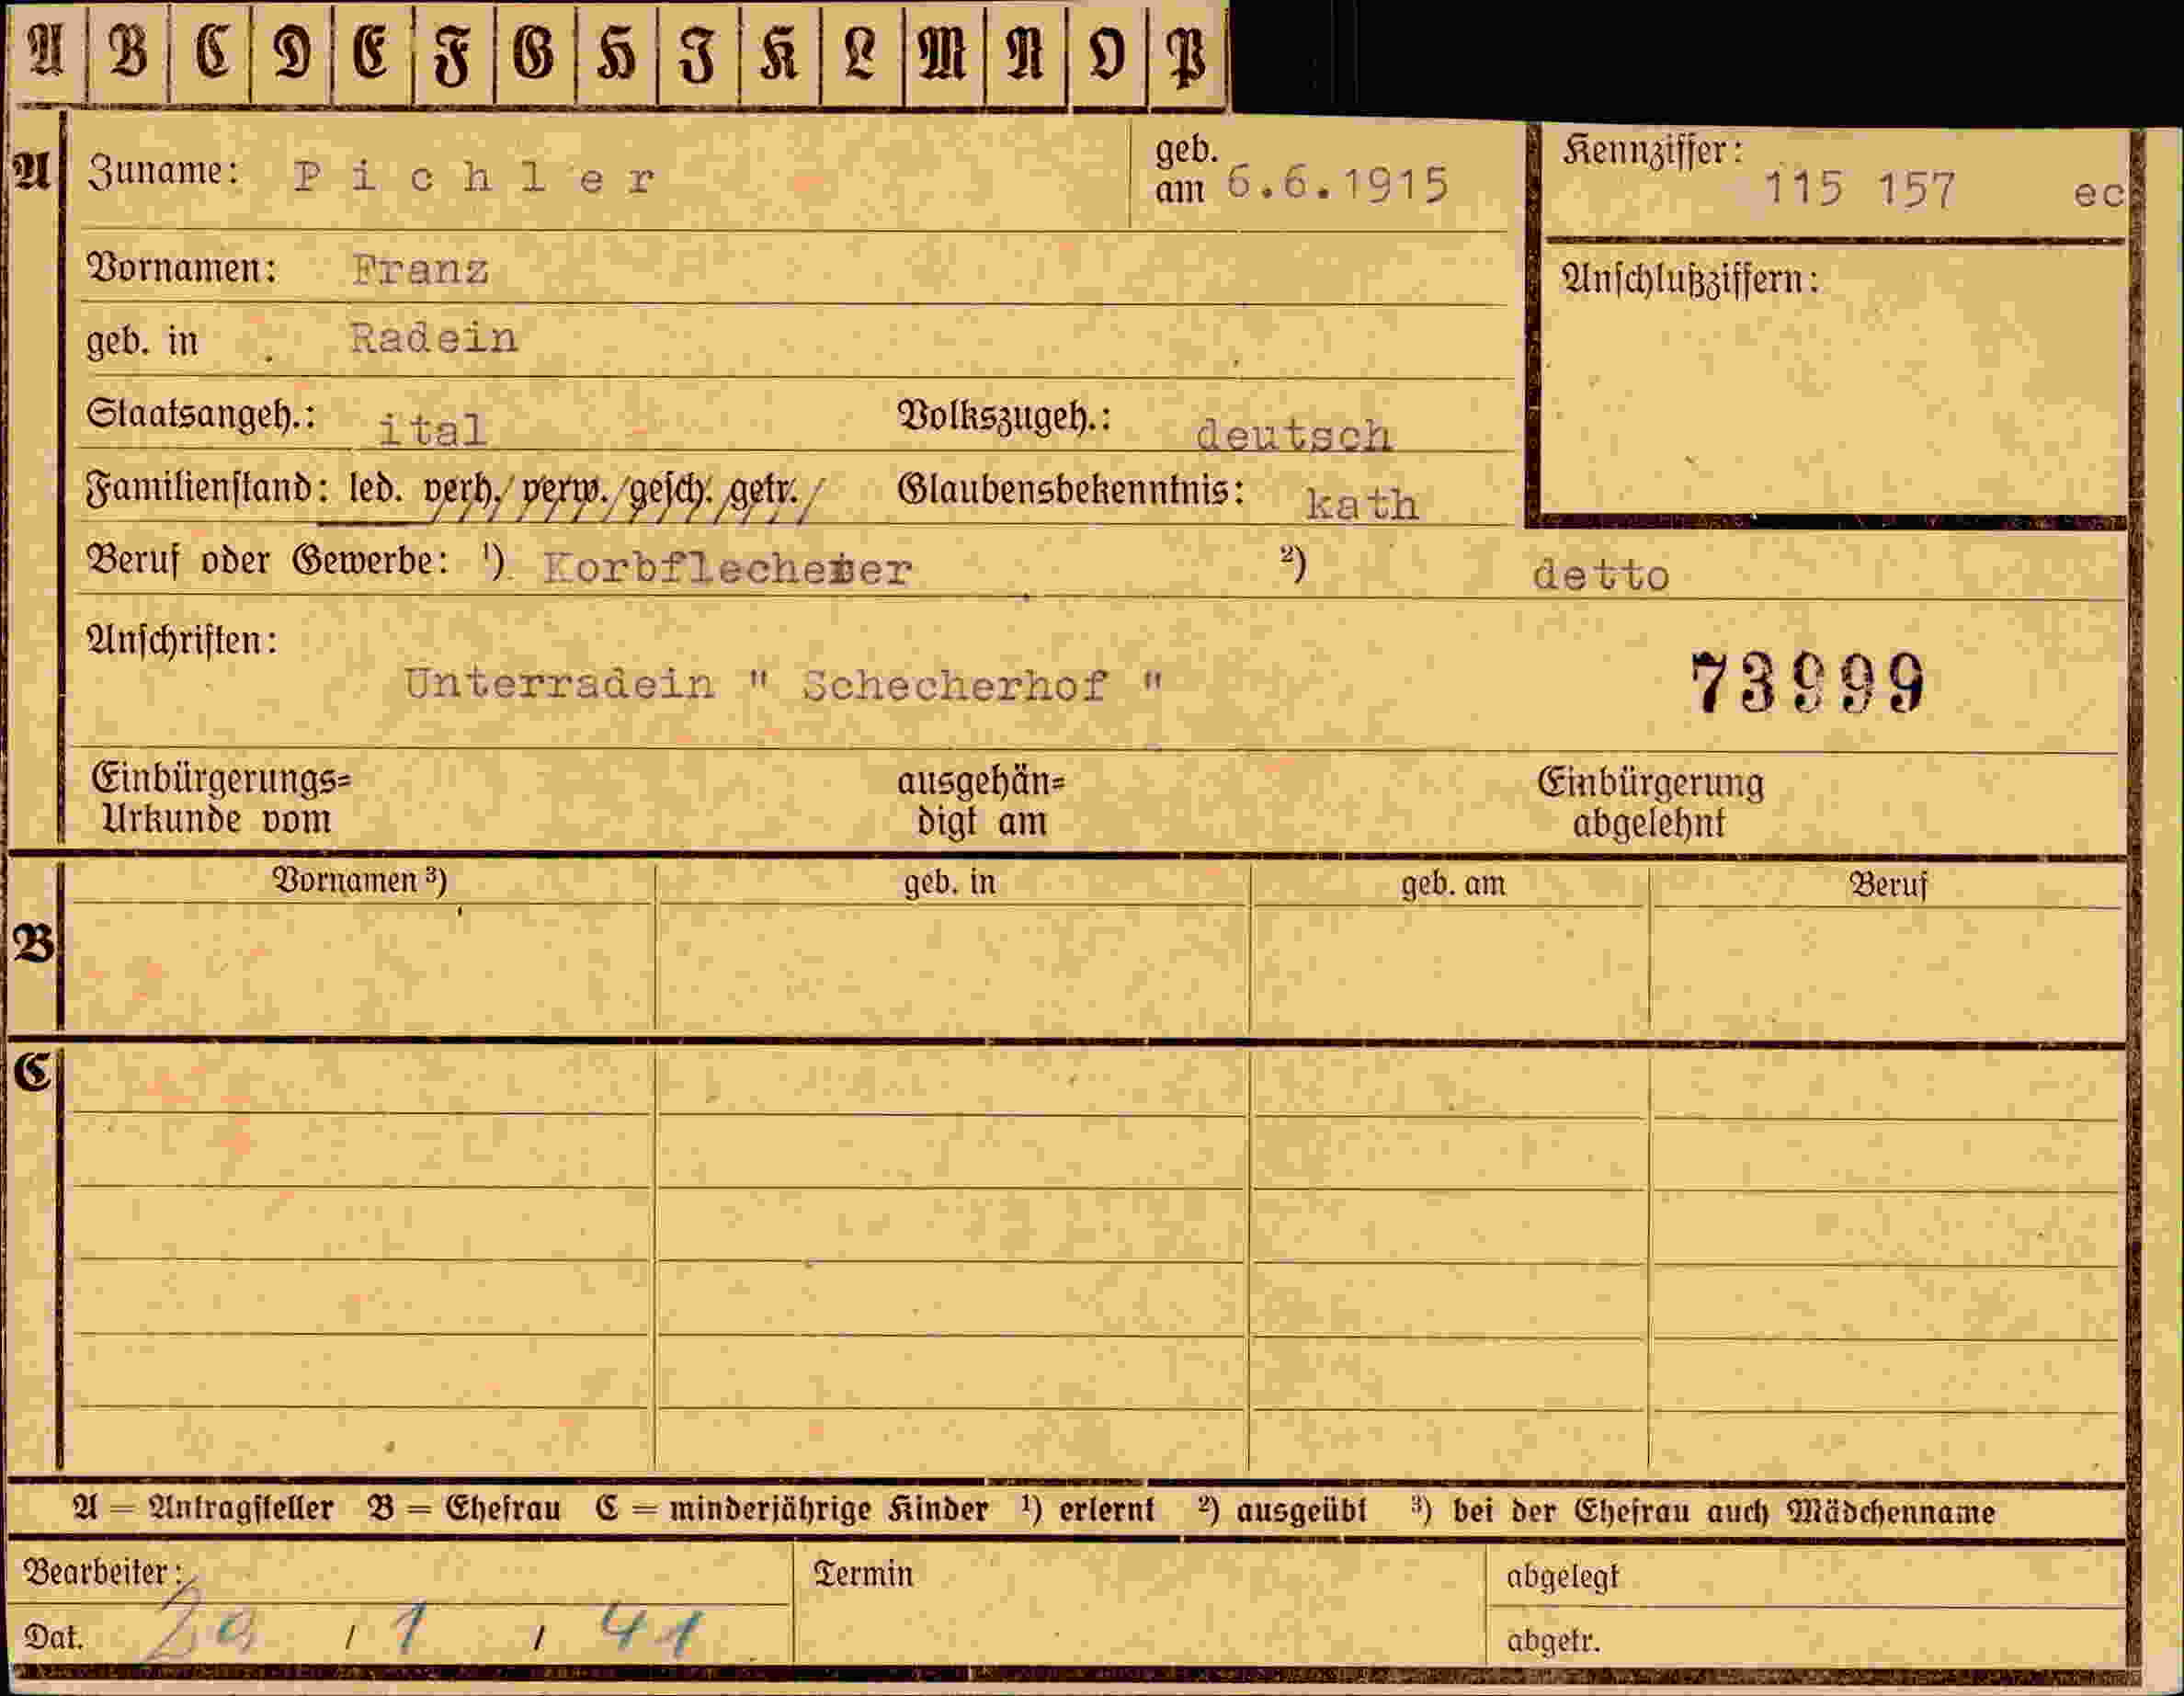 A B C D E F G H I K L M N O P
A Zuname: Pichler geb. am 6.6.1915 Kennziffer: 115 157 ec
Vornamen: Franz Anschlußziffern:
geb. in Radein
Staatsangeh.: ital Volkszugeh.: deutsch
Familienstand: led. verh./ verw./ gesch. getr./ Glaubensbekenntnis: kath
Beruf oder Gewerbe: ¹) 2) detto
Anschriften:
Unterradein " Schecherhof " 73999
Einbürgerungs= ausgehän= Einbürgerung
Urkunde vom digt am abgelehnt
Vornamen ³) geb. in geb. am Beruf
B
C
A = Antragsteller B = Ehefrau C = minderjährige Kinder ¹) erlernt ²) ausgeübt ³) bei der Ehefrau auch Mädchenname
Bearbeiter: Termin abgelegt
Dat. / 1 / 41 abgetr.